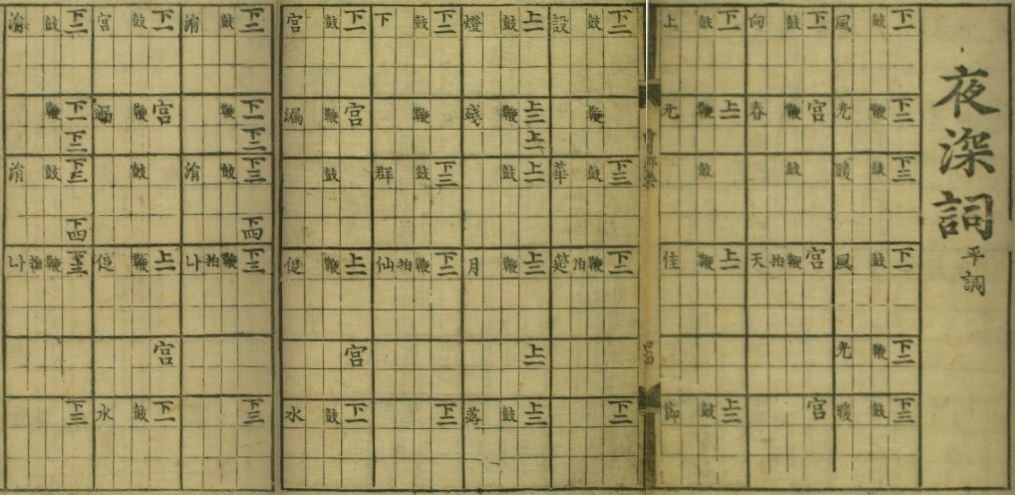 夜深詞 平調
下一 下二 下三 下一 下二 下三
鼓 鞭 鼓 鼓 鞭 鼓
風 光 暖 風 光 暖
下一 宮 宮 宮
鼓 鞭 鼓 拍 鞭
向 春 天
上一
鼓 鞭 鼓 鞭 鼓
上 元 佳 節
下二 下三 下二 下二
鼓 鞭 鼓 拍 鞭
設 華 筵
上一 上二 上一 上一 上二 上一 上二
鼓 鞭 鼓 鞭 鼓
燈 殘 月 落
下二 下三 下二 下二
鼓 鞭 鼓 拍 鞭
下 群 仙
下一 宮 上一 宮 下一
鼓 鞭 鼓 鞭 鼓
宮 漏 促 水
下二 下一 下二 下三 下四 下三 下三
鼓 鞭 鼓 拍 鞭
나
下一 宮 上一 宮 下一
鼓 鞭 鼓 鞭 鼓
宮 漏 促 水
下二 下一 下二 下三 下四 下三 下三
鼓 鞭 鼓 拍 鞭
나